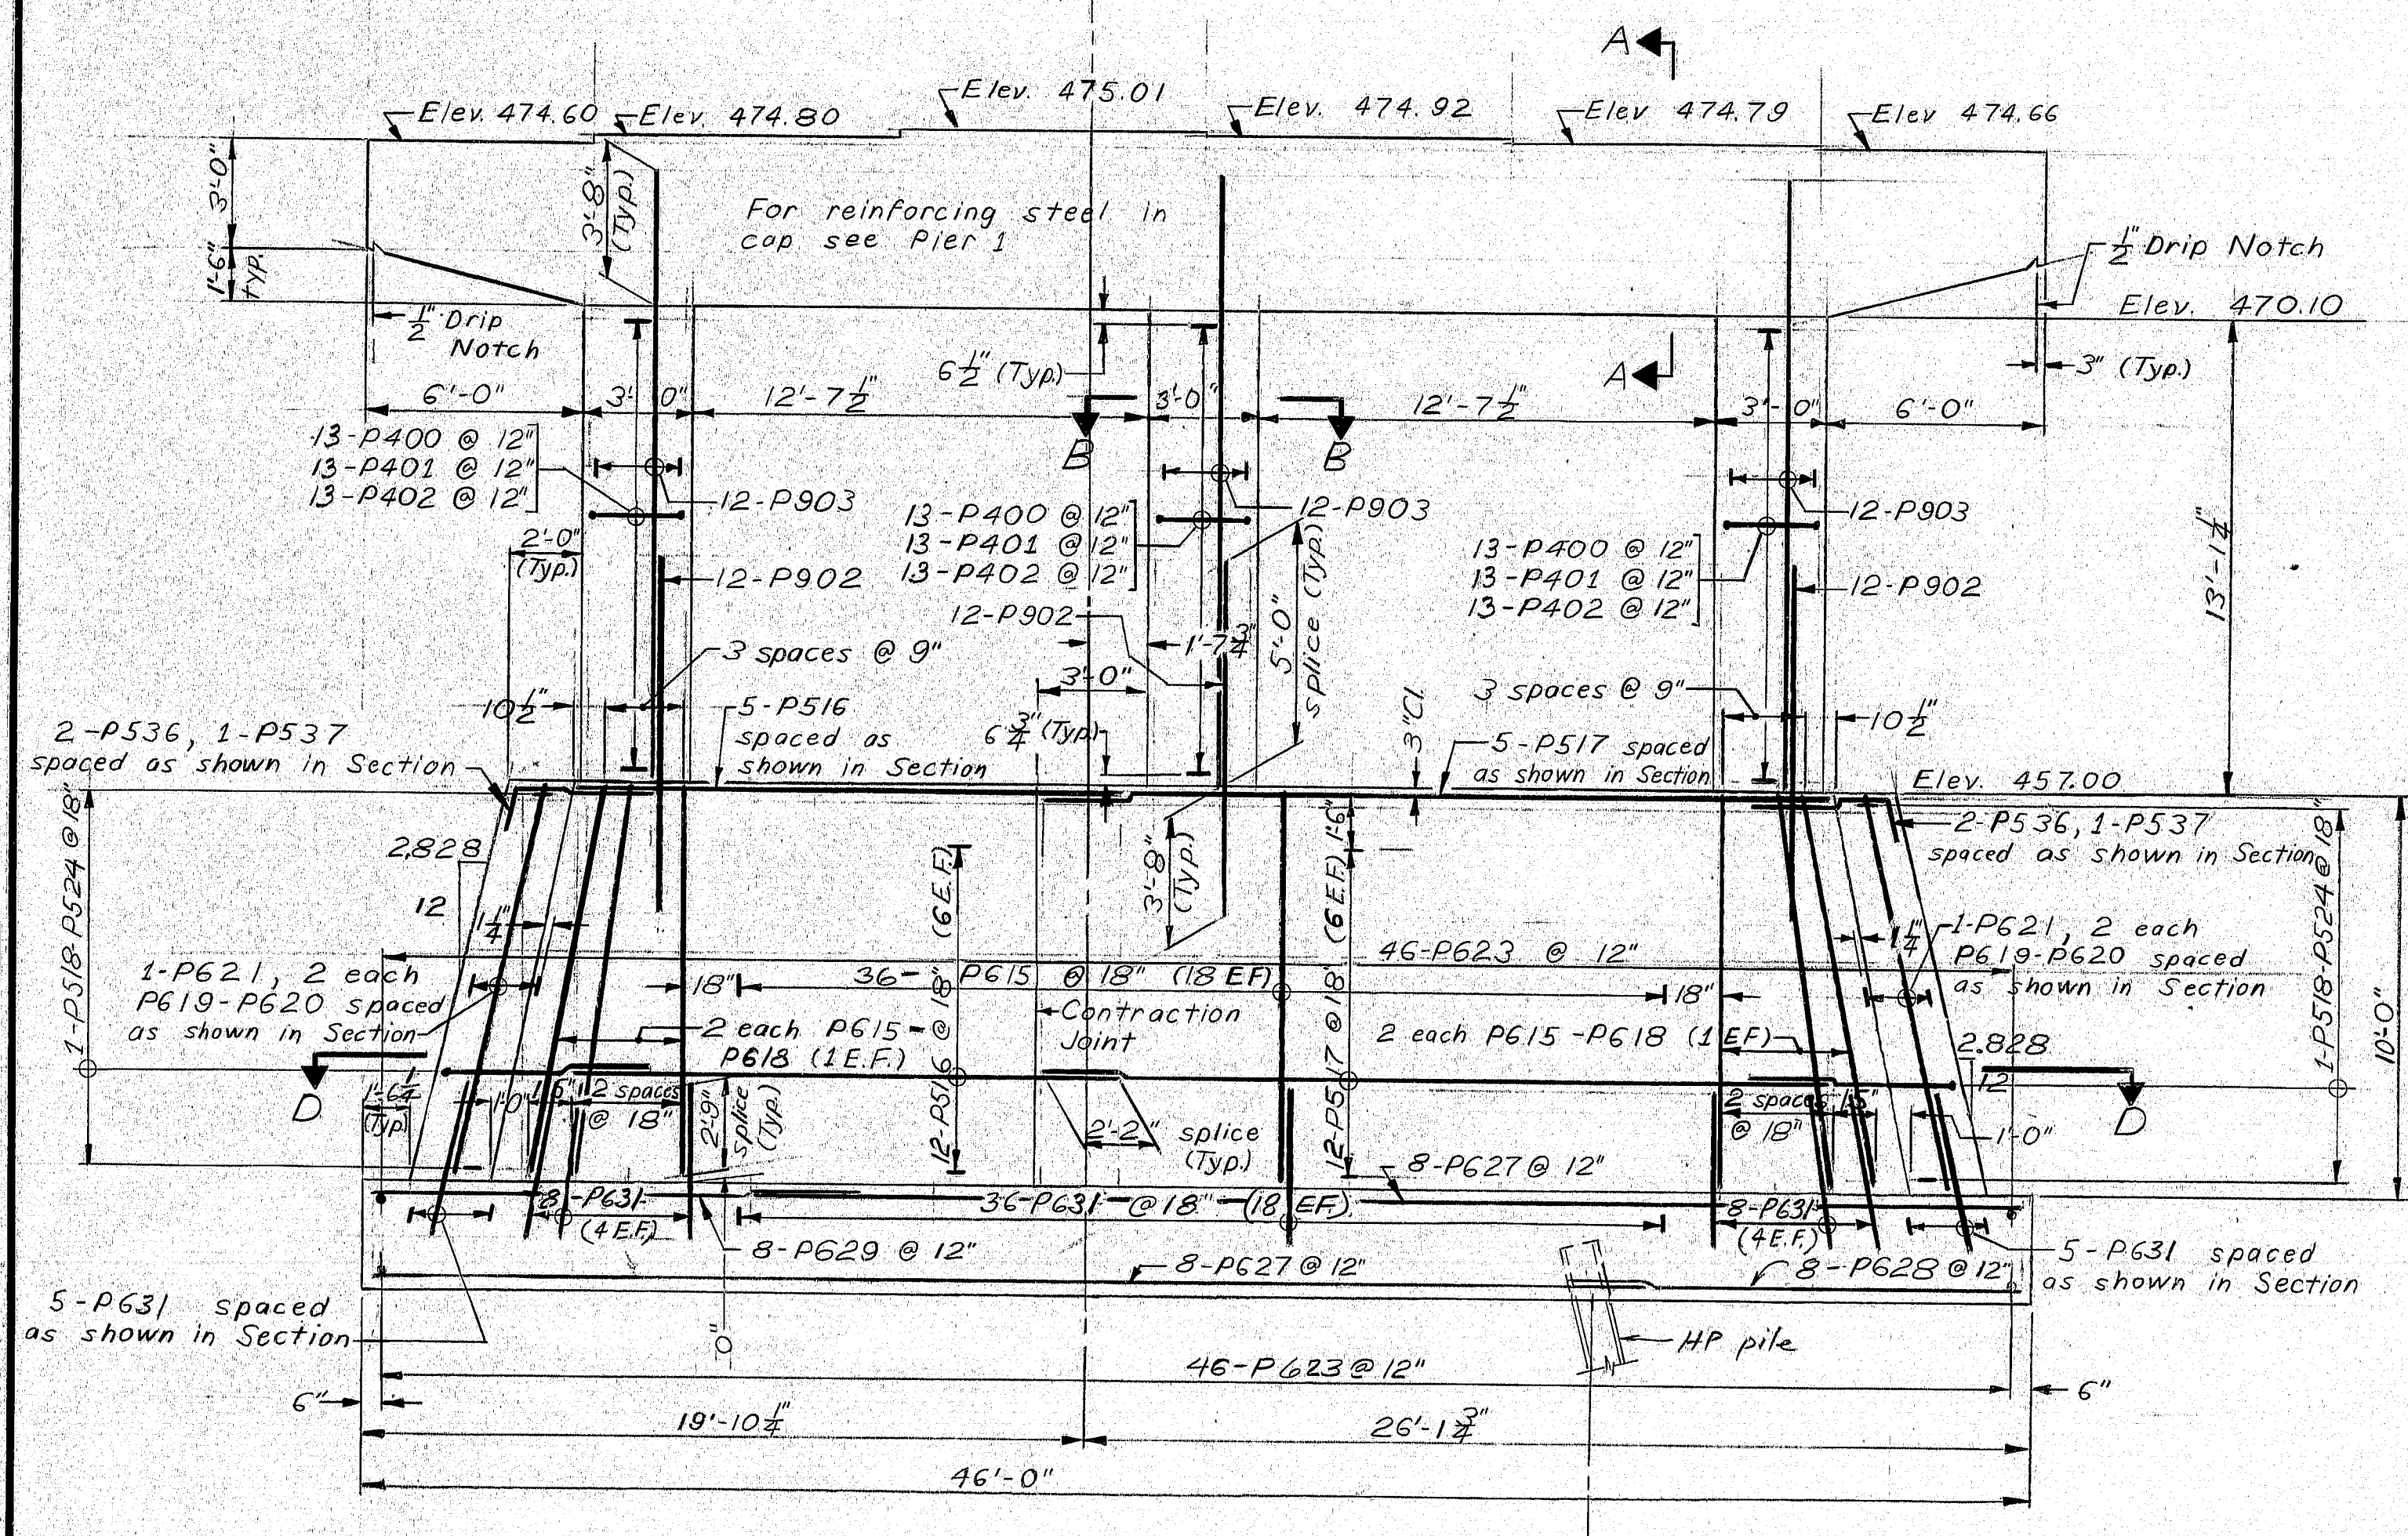 A
Elev. 474.60
Elev. 474.80
Elev. 475.01
Elev. 474.92
Elev 474.79
Elev 474.66
3'-0"
1'-6"
typ.
3'-8"
(Typ.)
For reinforcing steel in
cap see Pier 1
1/2" Drip Notch
Elev. 470.10
1/2" Drip
Notch
6 1/2" (Typ.)
A
3" (Typ.)
6'-0"
3'-0"
12'-7 1/2"
3'-0"
12'-7 1/2"
3'-0"
6'-0"
B
B
13-P400 @ 12"
13-P401 @ 12"
13-P402 @ 12"
12-P903
13-P400 @ 12"
13-P401 @ 12"
13-P402 @ 12"
12-P903
13-P400 @ 12"
13-P401 @ 12"
13-P402 @ 12"
12-P903
13'-1 1/4"
2'-0"
(Typ.)
12-P902
12-P902
12-P902
5'-0"
splice (Typ.)
3 spaces @ 9"
1'-7 3/4"
3'-0"
3 spaces @ 9"
10 1/2"
10 1/2"
5-P516
spaced as
shown in Section
6 3/4" (Typ.)
3" Cl.
5-P517 spaced
as shown in Section
2-P536, 1-P537
spaced as shown in Section
Elev. 457.00
2-P536, 1-P537
spaced as shown in Section
1-P518-P524 @ 18"
2.828
12
1 1/4"
(6 E.F.)
12-P516 @ 18"
3'-8"
(Typ.)
1'-6"
(6 E.F.)
12-P517 @ 18"
46-P623 @ 12"
1 1/4"
1-P621, 2 each
P619-P620 spaced
as shown in Section
1-P621, 2 each
P619-P620 spaced
as shown in Section
18"
36-P615 @ 18" (18 EF)
18"
Contraction
Joint
2 each P615-
P618 (1 E.F.)
2 each P615-P618 (1 EF)
2.828
12
1-P518-P524 @ 18"
10'-0"
D
D
1'-6 1/2"
(Typ.)
1'-0"
2 spaces
@ 18"
2'-9"
splice
(Typ.)
2'-2" splice
(Typ.)
2 spaces
@ 18"
15"
1'-0"
8-P627 @ 12"
8-P631
(4 E.F.)
36-P631 @ 18" (18 EF.)
8-P631
(4 E.F.)
8-P629 @ 12"
8-P627 @ 12"
8-P628 @ 12"
5-P631 spaced
as shown in Section
5-P631 spaced
as shown in Section
HP pile
46-P623 @ 12"
6"
6"
19'-10 1/4"
26'-1 3/4"
46'-0"